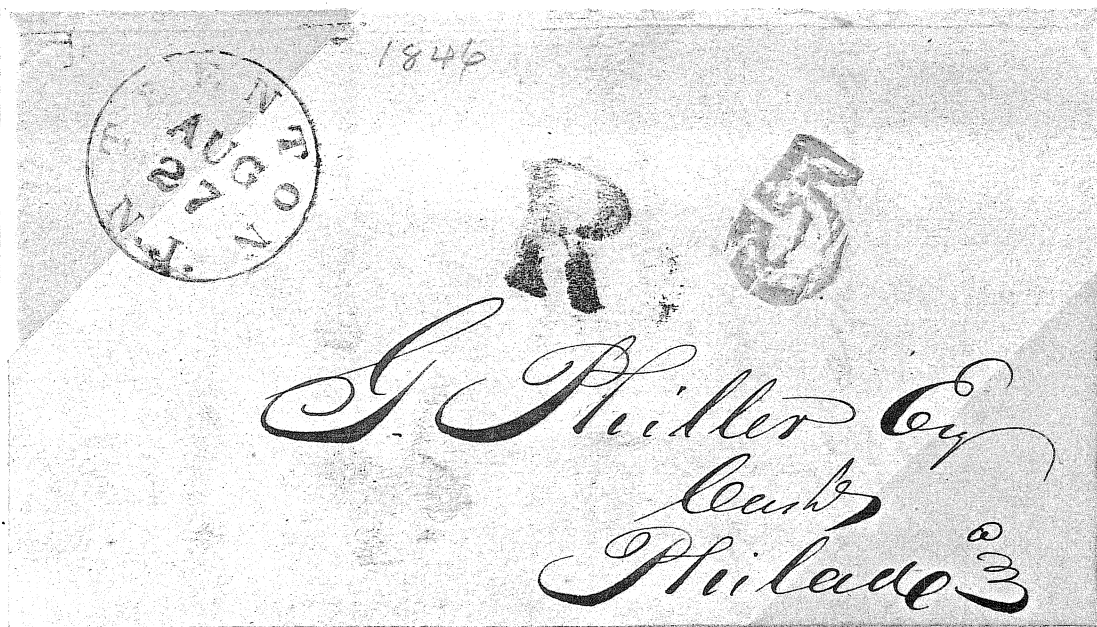 1846
TRENTON
N.J.
AUG
27
R 5
G. Philler Esq
Cash.
Philada
3